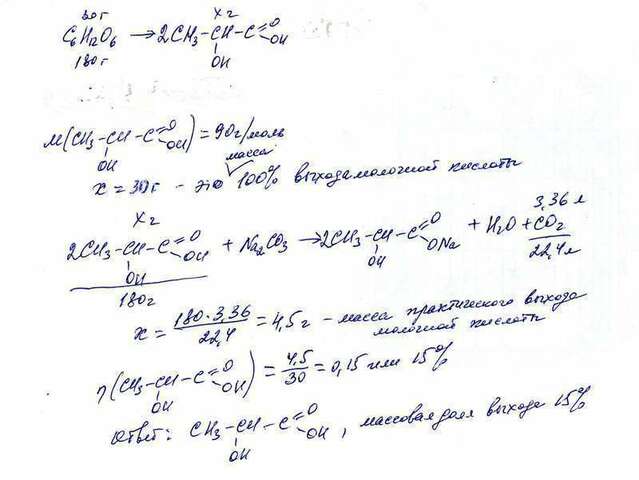 30 г X г
C₆H₁₂O₆ → 2CH₃-CH-C=O OH
180 г OH
M(CH₃-CH-C=O OH) = 90 г/моль
OH масса
x = 30 г - это 100% выхода молочной кислоты
X г 3,36 л
2CH₃-CH-C=O OH + Na₂CO₃ → 2CH₃-CH-C=O ONa + H₂O + CO₂
OH OH 22,4 л
180 г
x = 180·3,36 / 22,4 = 4,5 г - масса практического выхода
молочной кислоты
η(CH₃-CH-C=O OH) = 4,5 / 30 = 0,15 или 15%
OH
Ответ: CH₃-CH-C=O OH, массовая доля выхода 15%
OH